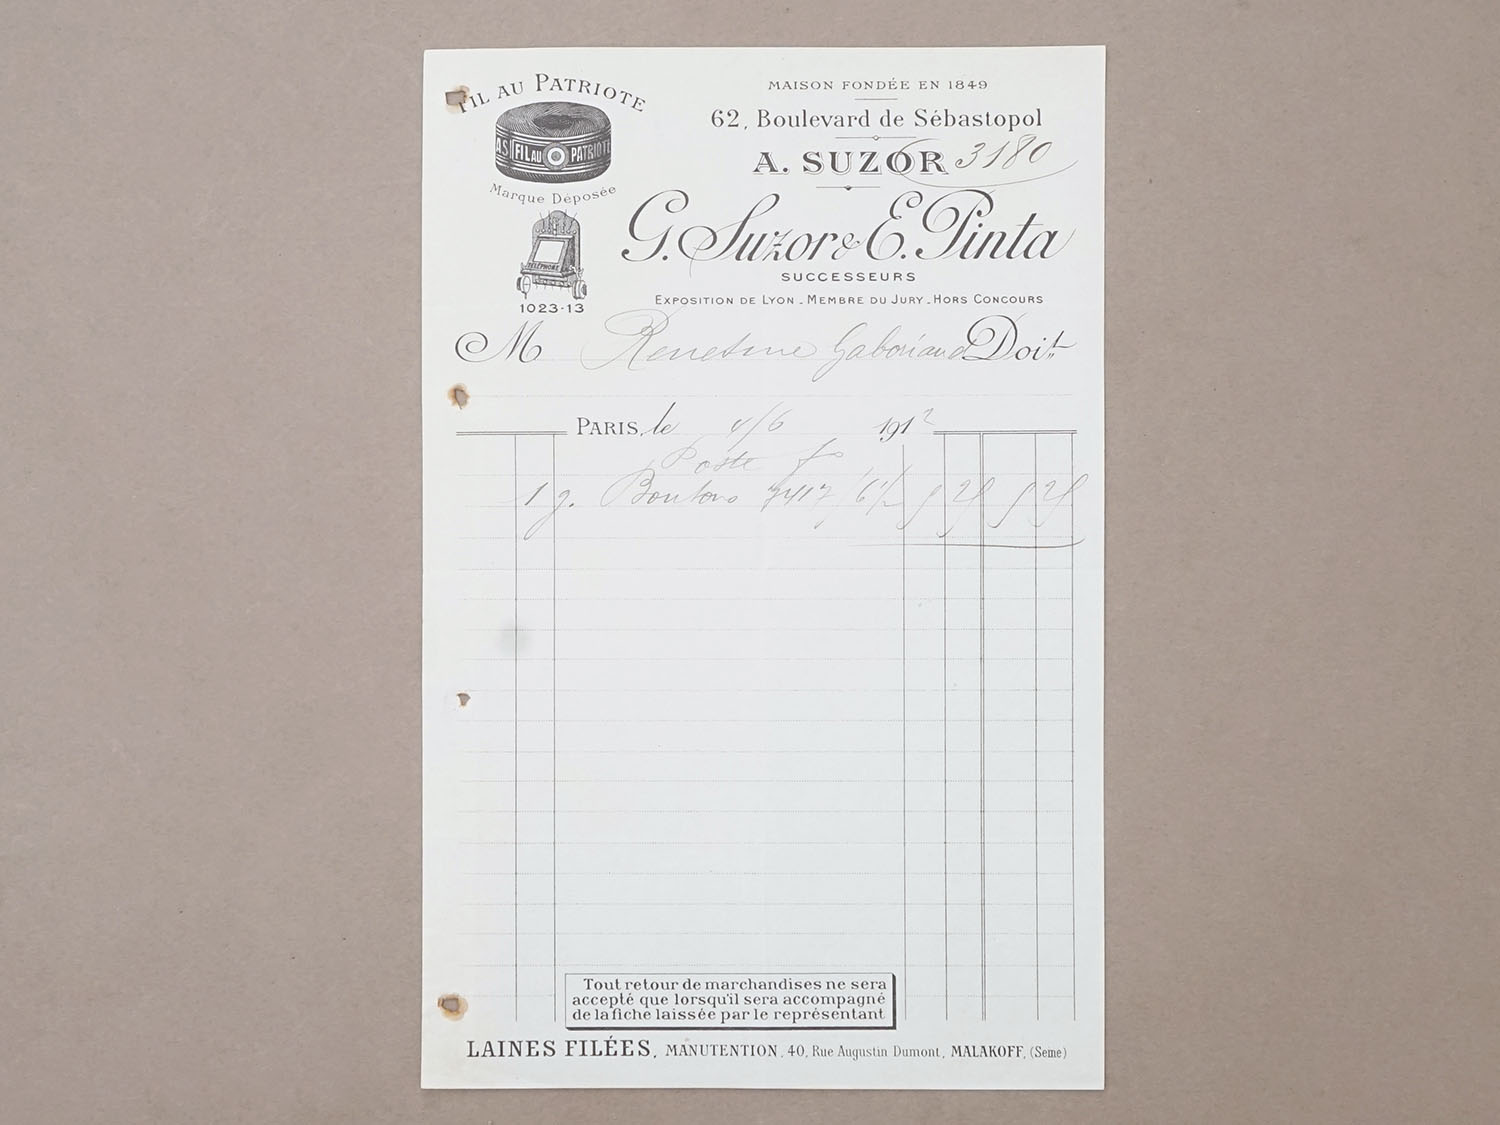 FIL AU PATRIOTE
A.S FIL AU PATRIOTE
Marque Déposée
TÉLÉPHONE
1023-13
MAISON FONDÉE EN 1849
62, Boulevard de Sébastopol
A. SUZOR 3180
G. Suzor & E. Pinta
SUCCESSEURS
EXPOSITION DE LYON - MEMBRE DU JURY - HORS CONCOURS
M Gaboriaud Doit
PARIS, le 4/6 1912
Poste
1 g. Boutons 7417 / 6 1/2 5 25 5 25
Tout retour de marchandises ne sera
accepté que lorsqu'il sera accompagné
de la fiche laissée par le représentant
LAINES FILÉES, MANUTENTION, 40, Rue Augustin Dumont, MALAKOFF, (Seine)